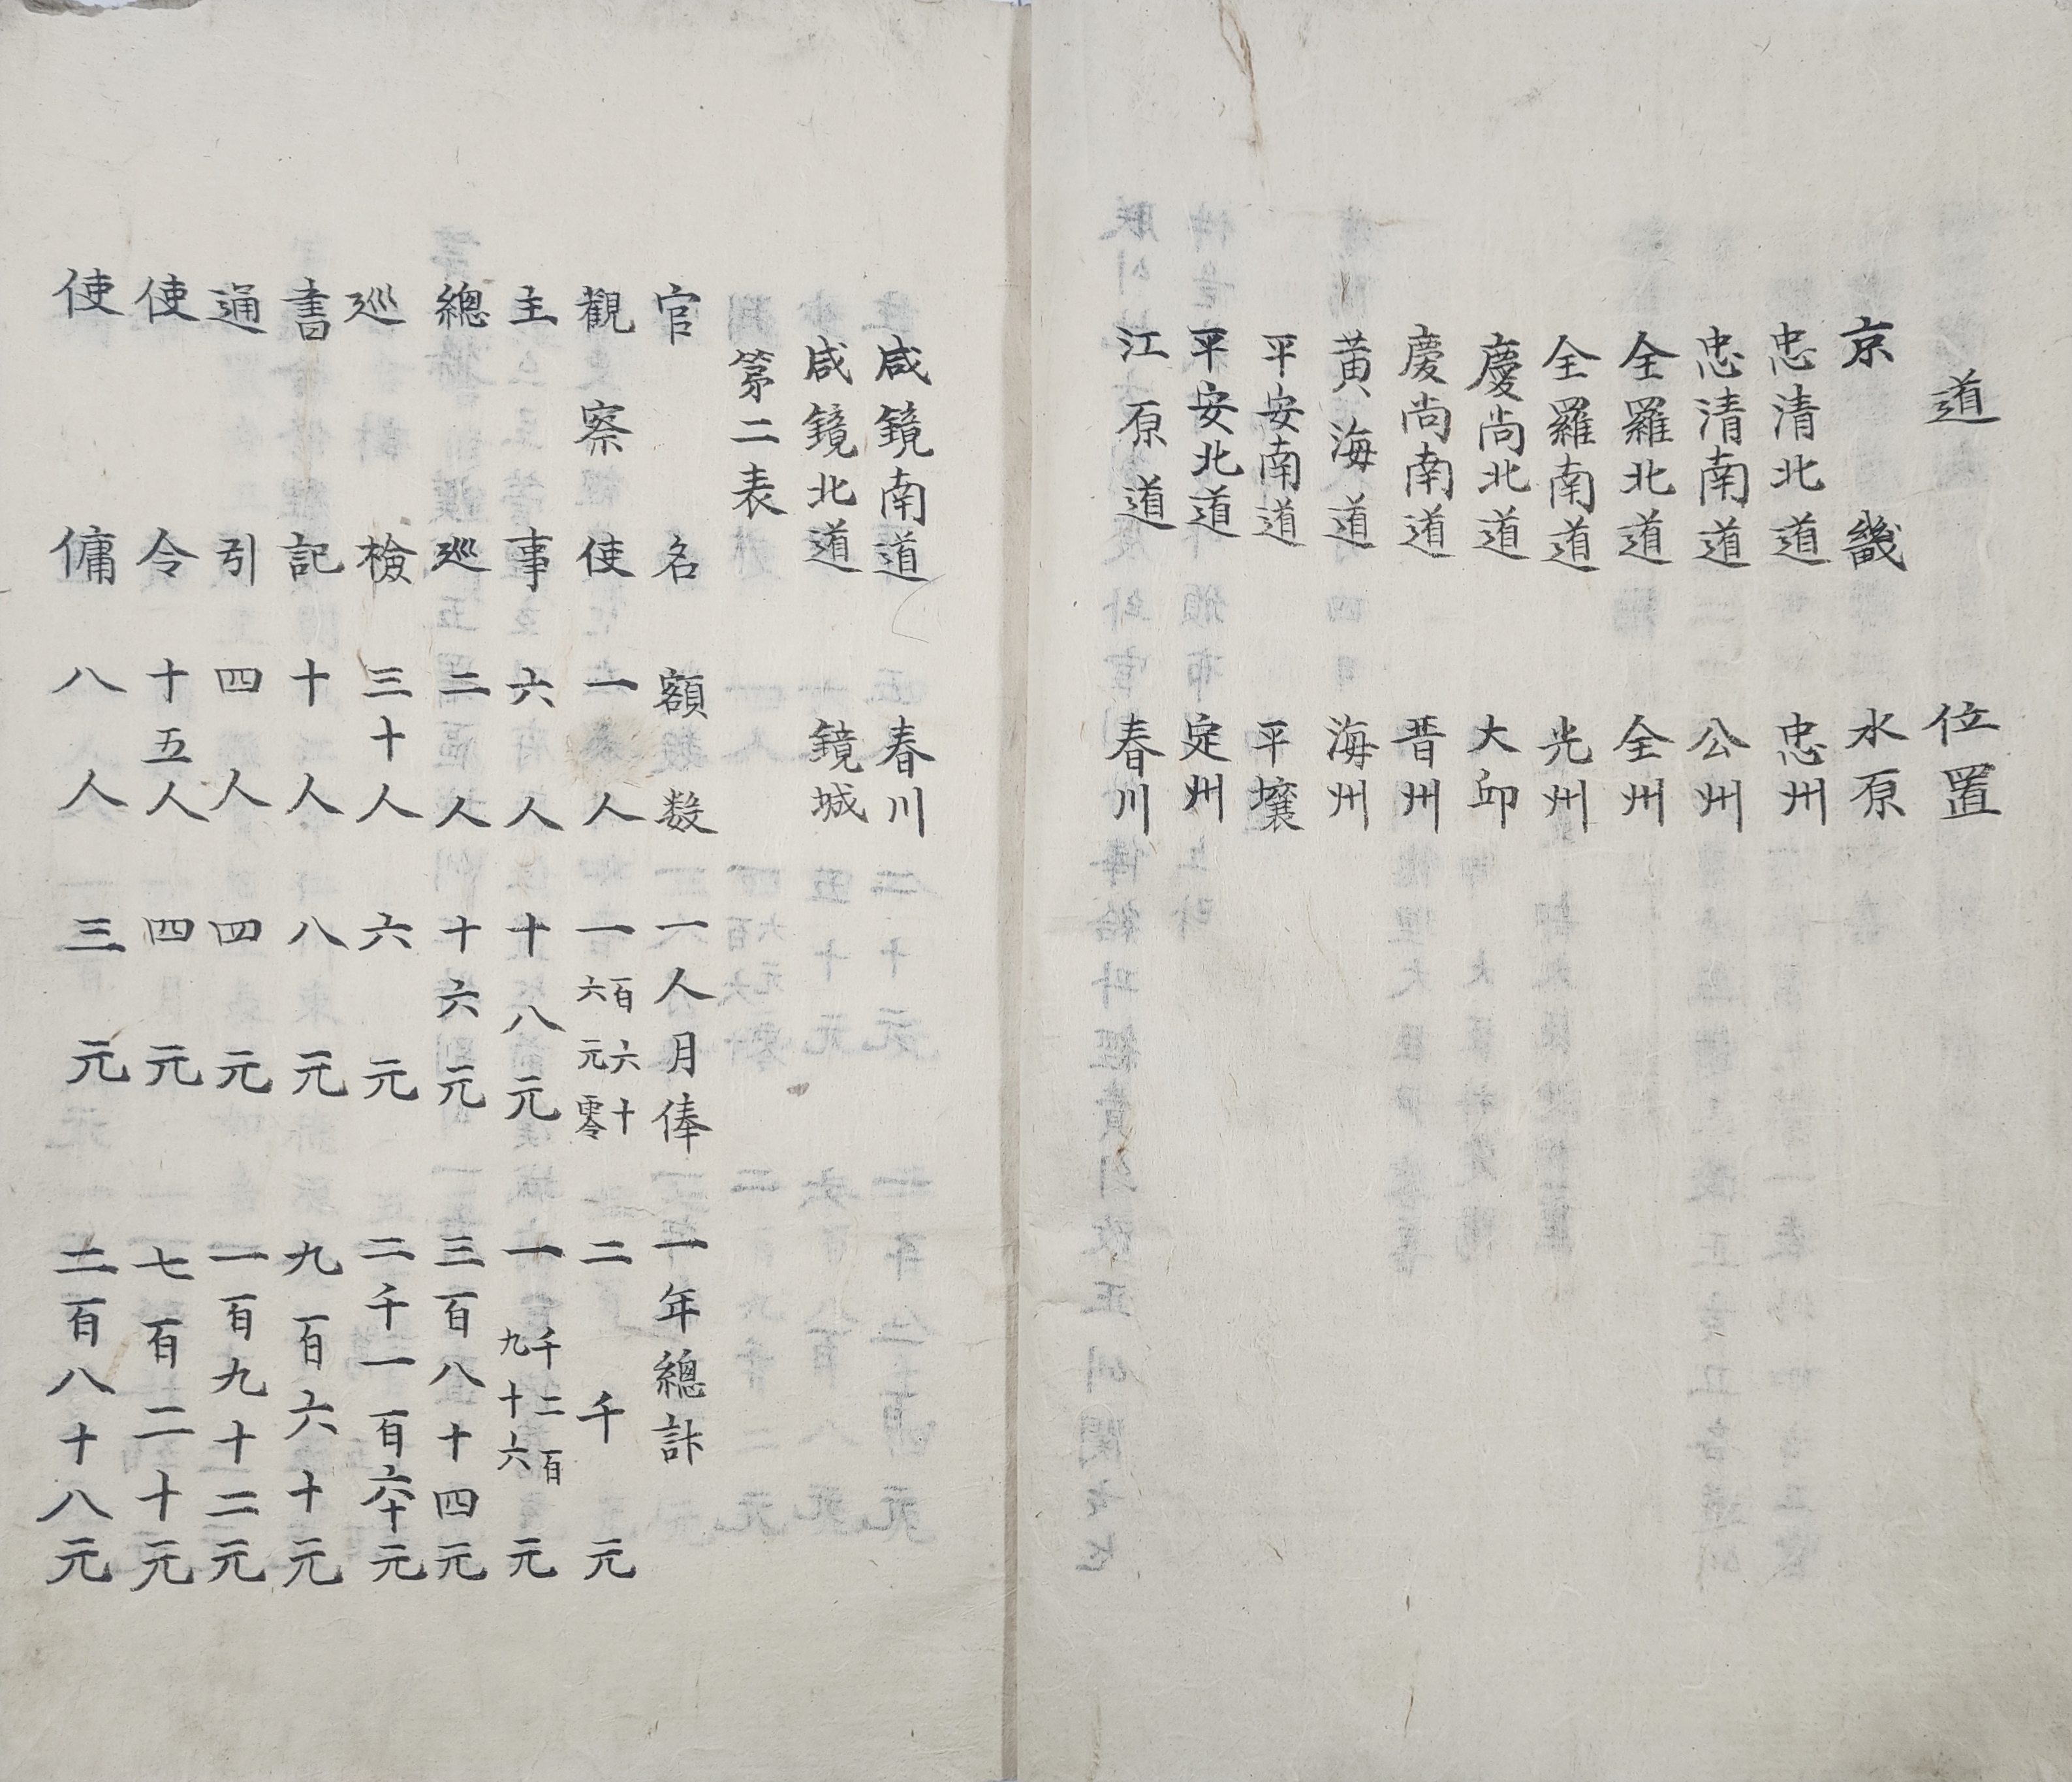 道 位置
京畿 水原
忠清北道 忠州
忠清南道 公州
全羅北道 全州
全羅南道 光州
慶尚北道 大邱
慶尚南道 晋州
黃海道 海州
平安南道 平壤
平安北道 定州
江原道 春川
咸鏡南道 春川
咸鏡北道 鏡城
第二表
官名 額數 一人月俸 一年總計
觀察使 一人 一百六十六元零 二千元
主事 六人 十八元 一千二百九十六元
總巡 二人 十六元 三百八十四元
巡檢 三十人 六元 二千一百六十元
書記 十人 八元 九百六十元
通引 四人 四元 一百九十二元
使令 十五人 四元 七百二十元
使傭 八人 三元 二百八十八元